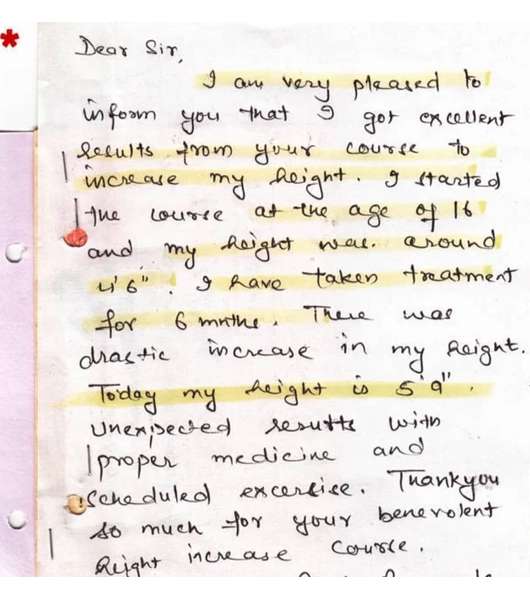 Dear Sir,
I am very pleased to
inform you that I got excellent
results from your course to
increase my height. I started
the course at the age of 16
and my height was around
4'6". I have taken treatment
for 6 mnths. There was
drastic increase in my height.
Today my height is 5'9".
Unexpected results with
proper medicine and
scheduled excersise. Thankyou
so much for your benevolent
height increase course.